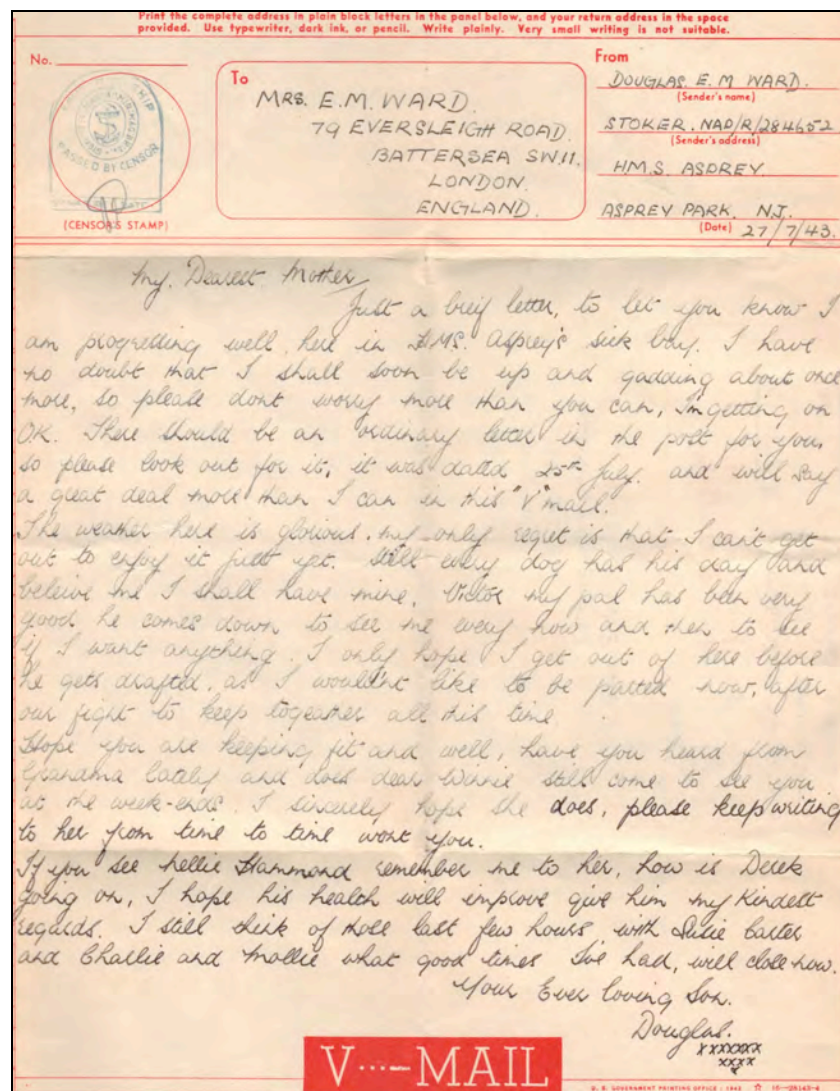 Print the complete address in plain block letters in the panel below, and your return address in the space
provided. Use typewriter, dark ink, or pencil. Write plainly. Very small writing is not suitable.
No.
PASSED BY CENSOR
(CENSOR'S STAMP)
To
MRS. E.M. WARD.
79 EVERSLEIGH ROAD.
BATTERSEA SW.11.
LONDON.
ENGLAND.
From
DOUGLAS. E. M WARD.
(Sender's name)
STOKER. NAP/R/284652
(Sender's address)
H.M.S. ASPREY.
ASPREY PARK. N.J.
(Date) 27/7/43.
My. Dearest. Mother
Just a breif letter, to let you know I
am progressing well, here in H.MS. Asprey's sick bay. I have
no doubt that I shall soon be up and gadding about once
more, so please dont worry more than you can, I'm getting on
OK. There should be an ordinary letter in the post for you,
so please look out for it, it was dated 25th July. and will say
a great deal more than I can in this "V" mail.
The weather here is glorious. my only regret is that I can't get
out to enjoy it just yet. Still every dog has his day and
beleive me I shall have mine. Victor my pal has been very
good he comes down to see me every now and then to see
if I want anything. I only hope I get out of here before
he gets drafted, as I wouldn't like to be parted now, after
our fight to keep togeather all this time.
Hope you are keeping fit and well, have you heard from
Grandma lately and does dear Winnie still come to see you
at the week-ends. I sincerely hope she does, please keep writing
to her from time to time wont you.
If you see nellie Hammond remember me to her, how is Derek
going on, I hope his health will improve give him my Kindest
regards. I still think of those last few hours, with Susie Carter
and Charlie and Mollie what good times I've had, will close now.
Your Ever loving Son.
Douglas.
xxxxxxx
xxxx
x
V···—MAIL
U. S. GOVERNMENT PRINTING OFFICE : 1942 ☆ 16—28143-4